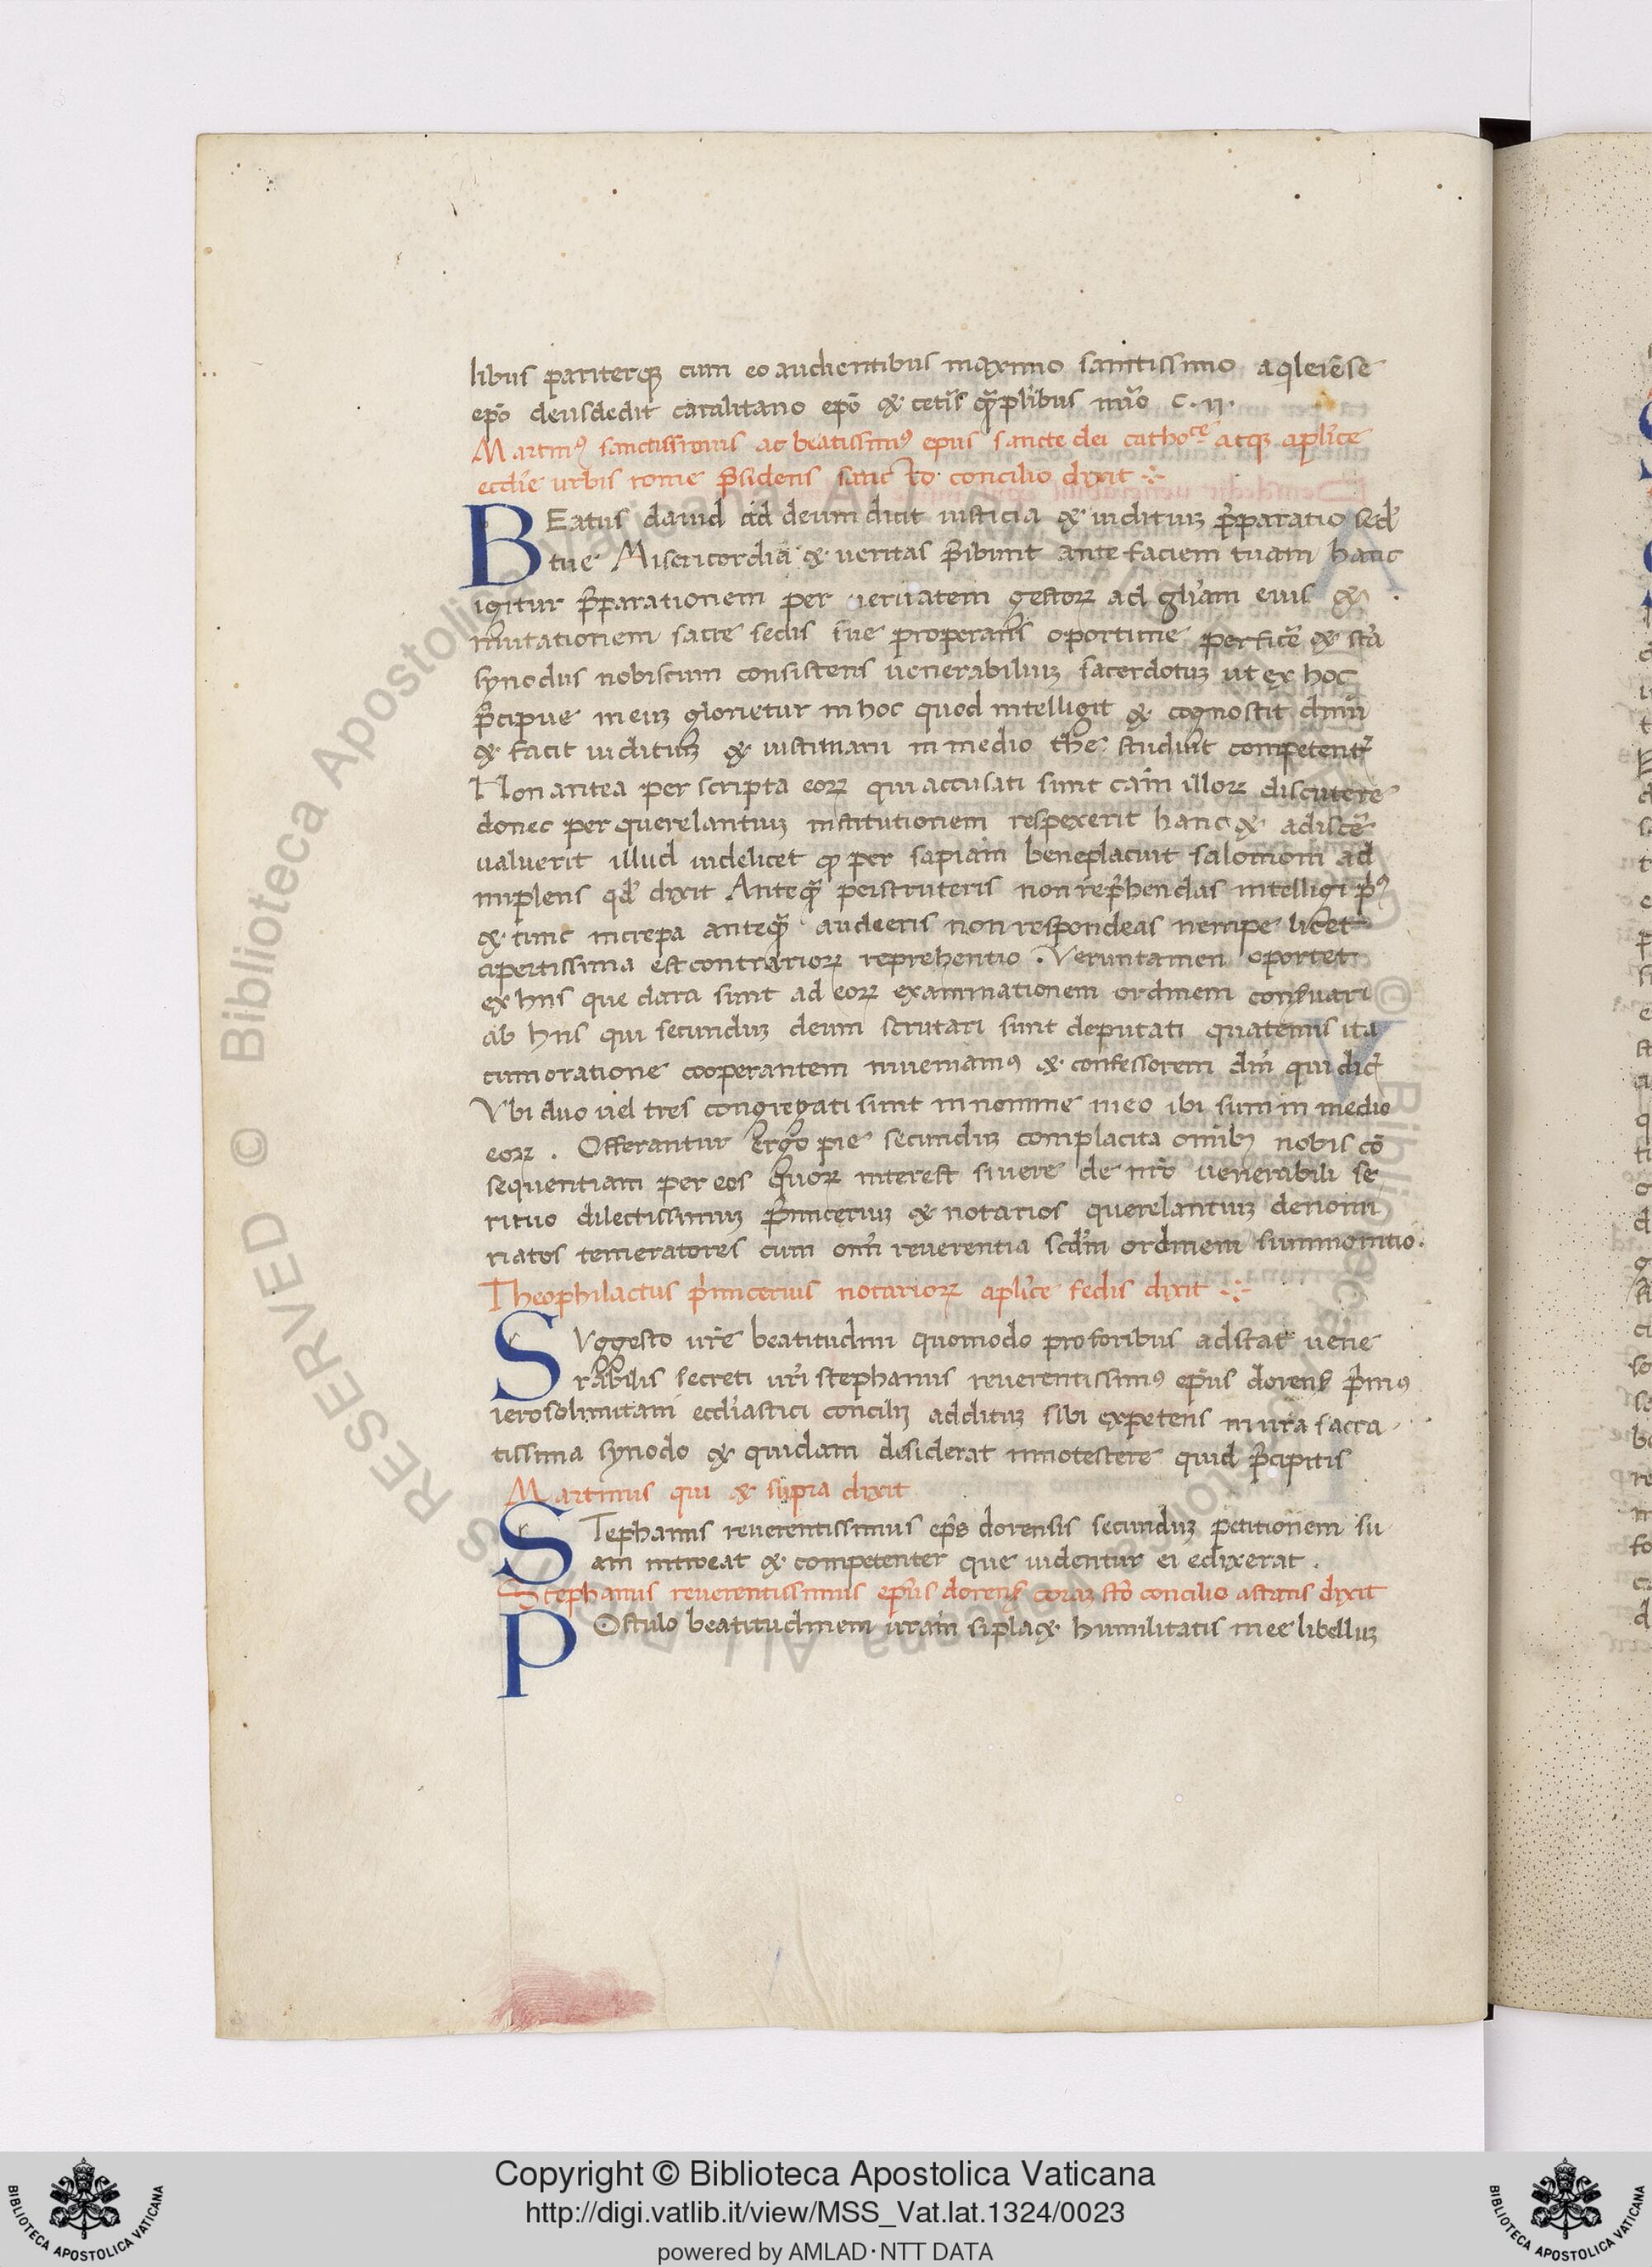 libus pariterqꝫ cum eo audientibus maximo sanctissimo aqleiēse
epō deusdedit caralitano epō & ceteris q̄plibus nūo c. ii.
Martinꝰ sanctissimus ac beatissimꝰ epus sancte dei cathoce atqꝫ aplice
ecclie urbis rome p̄sidens sancto concilio dixit
BEatus dauid ad deum dicit iusticia & iudituꝫ p̄paratio sed̾
tue Misericordia & ueritas p̄ibunt ante faciem tuam hanc
igitur p̄parationem per ueritatem gestoꝝ ad gliam eius &
mutationem sacre sedis sue properans oportune perficē & sc̄a
synodus nobiscum consistens uenerabiliuꝫ sacerdotuꝫ ut ex hoc
p̄cipue in eiꝫ glorietur in hoc quod intelligit & cognoscit dnm̄
& facit iudituꝫ & iusticiam in medio studuit competentr̄
Non antea per scripta eoꝝ qui accusati sunt cam̄ illoꝝ discutere
donec per querelantiuꝫ institutionem respexerit hanc & adiscē
ualuerit illud uidelicet qꝫ per sapiam̄ beneplacuit salomoni ad
implens qd̾ dixit Anteq̄ perscruteris non rep̄hendas intelligi pꝰ
& tunc increpa anteq̄ audeeris non respondeas nempe licet
apertissima est contrarioꝝ reprehentio . Veruntamen oportet
ex hiis que data sunt ad eoꝝ examinationem ordinem conseruari
ab hiis qui secunduꝫ deum scrutari sunt deputati quatenus ita
cum oratione cooperantem inueniamꝰ & confessorem dnī qui dic̄
Vbi duo uel tres congregati sunt in nomine meo ibi sum in medio
eoꝝ . Offerantur ergo pie secunduꝫ complacita omibꝫ nobis cō
sequentiam per eos quoꝝ interest siuere de nrō uenerabili se
rituo dilectissimuꝫ p̄miceriuꝫ & notarios querelantiuꝫ denomi
natos temeratores cum omī reuerentia scdm̄ ordinem summonitio.
Theophilactus p̄micerius notarioꝝ aplice sedis dixit
SVggesto urē beatitudini quomodo pro foribus adstat uene
rabilis secreti urī stephanus reuerentissimꝰ epus dorens̄ p̄mꝰ
ierosolimitani eccliastici concilii addituꝫ sibi expetens in urā sacra
tissima synodo & quidam desiderat innotescere quid p̄cipitis
Martinus qui & supra dixit
STephanus reuerentissimus epūs dorensis secunduꝫ petitionem su
am introeat & competenter que uidentur ei edixerat .
Stephanus reuerentissimus epūs dorens̄ coraꝫ scō concilio astans dixit
POstulo beatitudinem uram̄ si plac& humilitatis mee libelluꝫ
© Biblioteca Apostolica Vaticana ALL RIGHTS RESERVED
Copyright © Biblioteca Apostolica Vaticana
http://digi.vatlib.it/view/MSS_Vat.lat.1324/0023
powered by AMLAD·NTT DATA
BIBLIOTECA APOSTOLICA VATICANA
BIBLIOTECA APOSTOLICA VATICANA